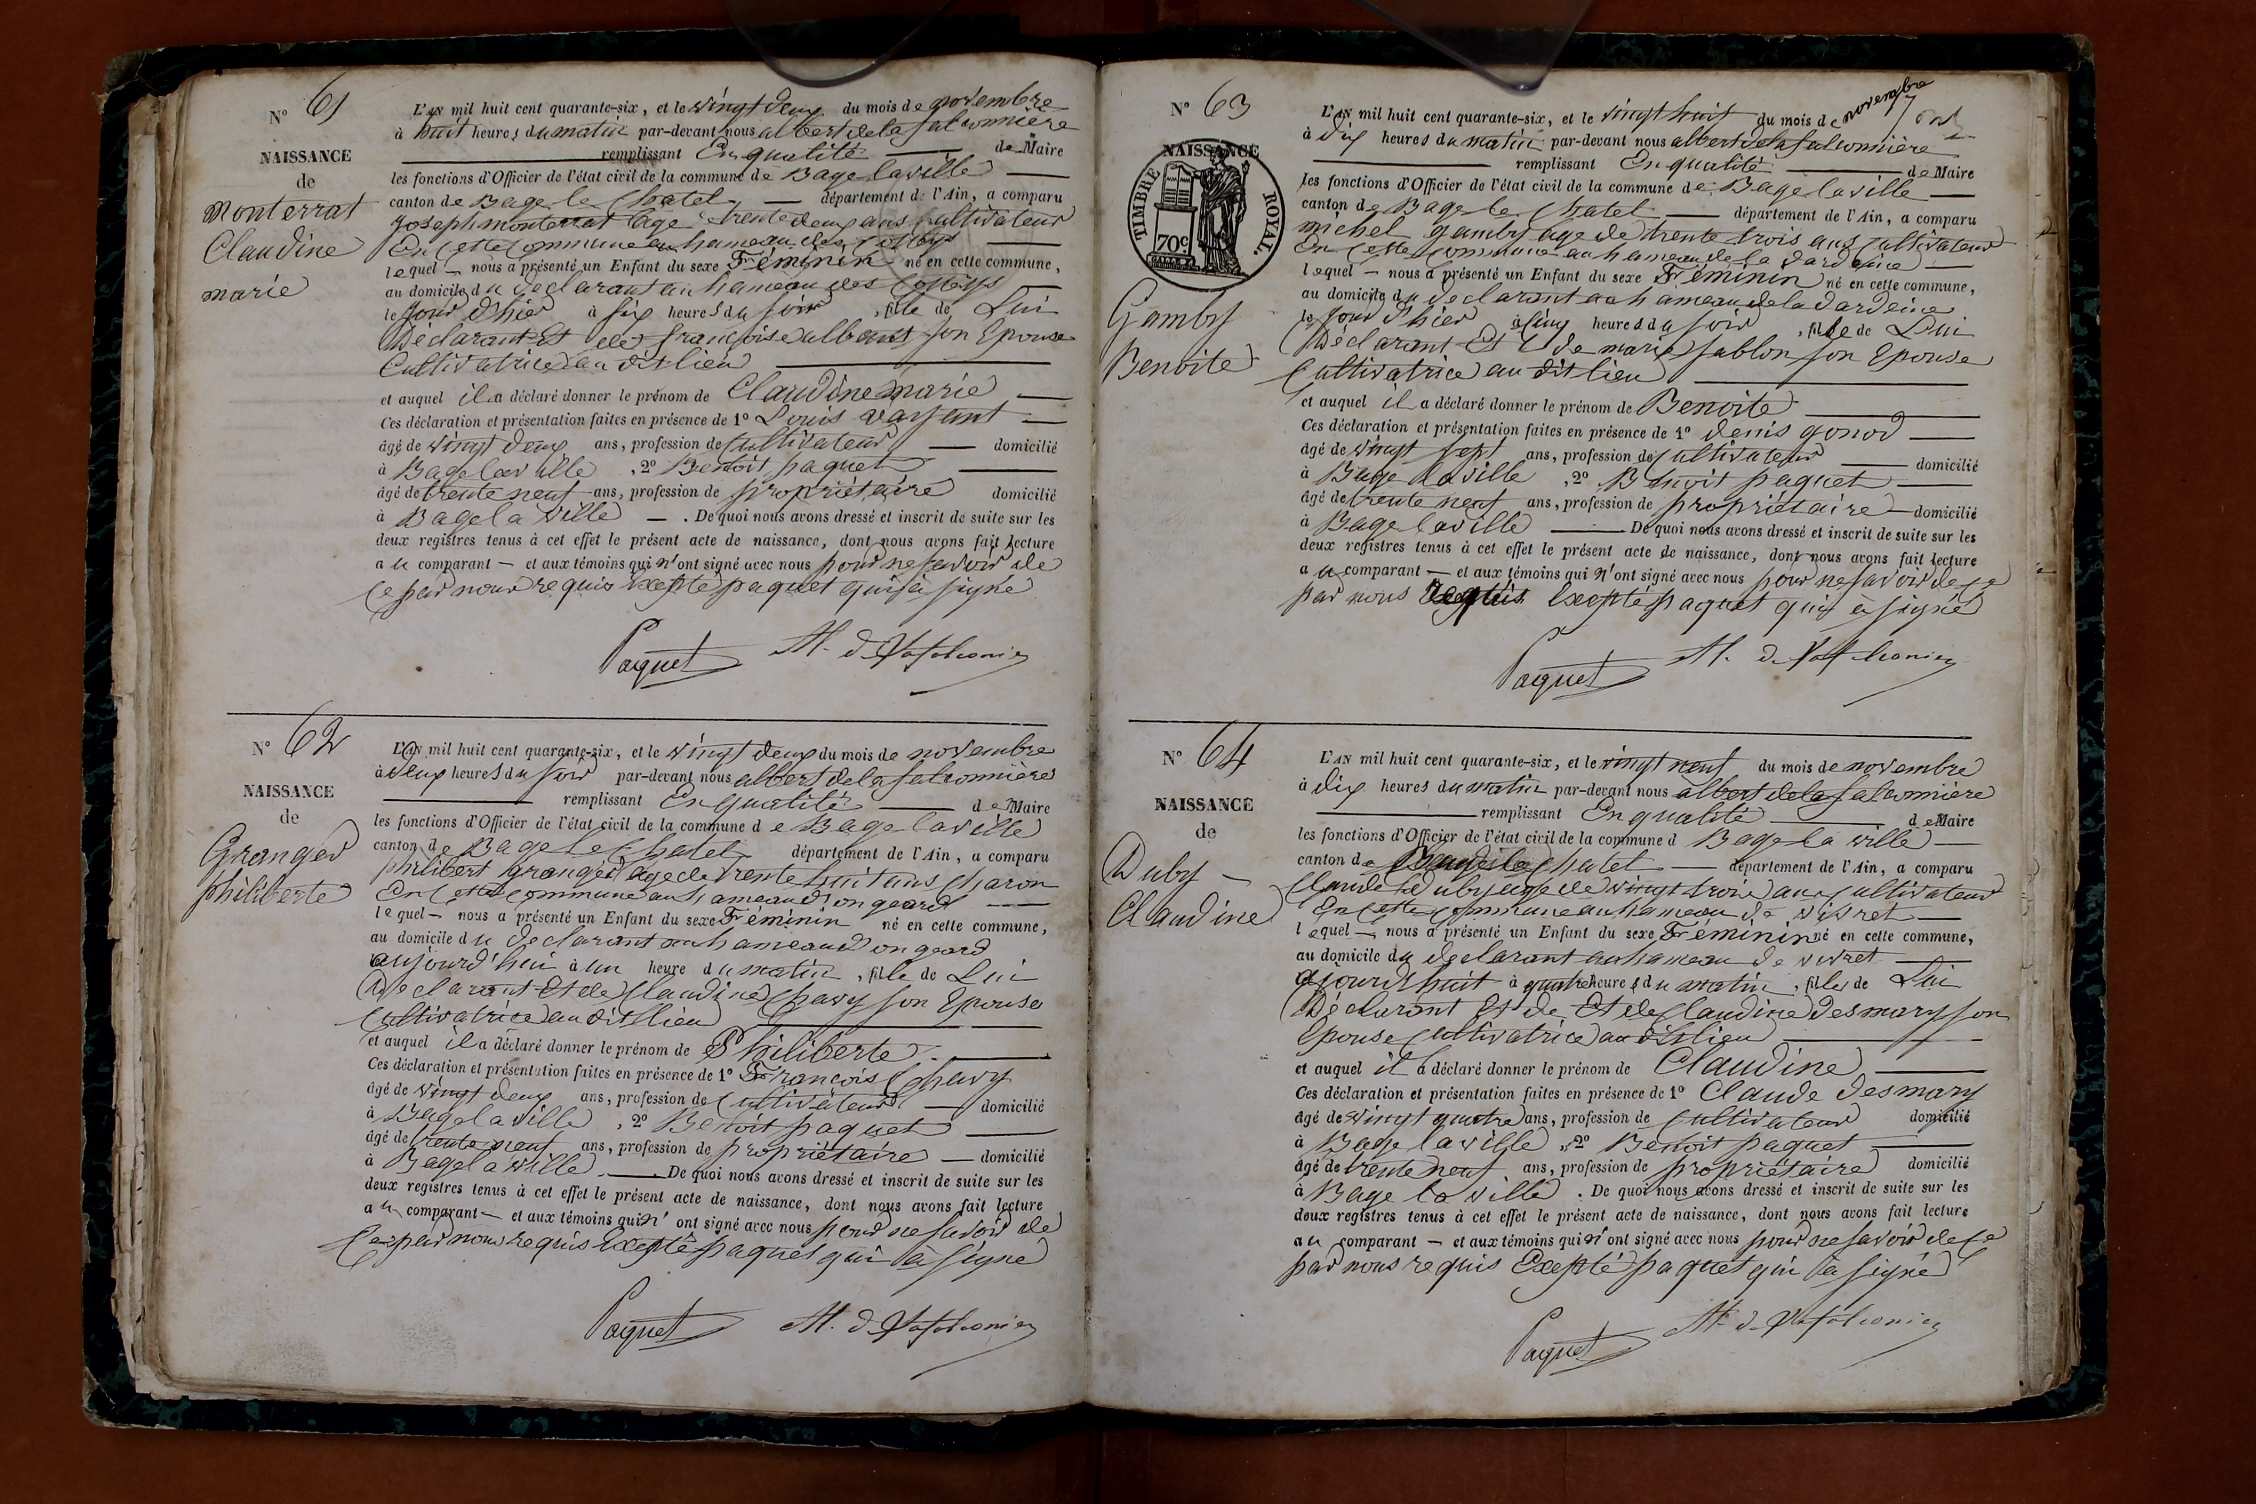 N° 61
NAISSANCE
de
Monterrat
Claudine
marie
L'AN mil huit cent quarante-six, et le vingt deux du mois de novembre
à huit heures du matin par-devant nous albert dela falconnière
remplissant En qualité de Maire
les fonctions d'Officier de l'état civil de la commune de Bage la ville
canton de Bage le Chatel département de l'Ain, a comparu
Joseph monterrat agé trente deux ans Cultivateur
En Cette Commune au hameau des
lequel nous a présenté un Enfant du sexe Féminin né en cette commune,
au domicile du declarant au hameau des
le jour d'hier à six heures du soir, fille de Lui
Déclarant Et de françoise son Epouse
Cultivatrice au dit lieu
et auquel il a déclaré donner le prénom de Claudine marie
Ces déclaration et présentation faites en présence de 1° Louis
âgé de vingt deux ans, profession de Cultivateur domicilié
à Bage la ville, 2° Benoit paquet
âgé de trente neuf ans, profession de propriétaire domicilié
à Bage la ville. De quoi nous avons dressé et inscrit de suite sur les
deux registres tenus à cet effet le présent acte de naissance, dont nous avons fait lecture
au comparant et aux témoins qui n'ont signé avec nous pour ne savoir de
Ce par nous requis Excepté paquet qui à signé
Paquet
N° 62
NAISSANCE
de
Granger
philiberte
L'AN mil huit cent quarante-six, et le vingt deux du mois de novembre
à deux heures du soir par-devant nous albert dela falconnière
remplissant En qualité de Maire
les fonctions d'Officier de l'état civil de la commune de Bage la ville
canton de Bage le Chatel département de l'Ain, a comparu
philibert Granger agé de trente huit ans Charon
En Cette Commune au hameau d'ongeard
lequel nous a présenté un Enfant du sexe Féminin né en cette commune,
au domicile du declarant au hameau d'ongeard
aujourd'hui à un heure du matin, fille de Lui
Declarant Et de Claudine Chavy son Epouse
Cultivatrice au dit lieu
et auquel il a déclaré donner le prénom de Philiberte
Ces déclaration et présentation faites en présence de 1° François Chavy
âgé de vingt deux ans, profession de Cultivateur domicilié
à Bage la ville, 2° Benoit paquet
âgé de trente neuf ans, profession de propriétaire domicilié
à Bage la ville. De quoi nous avons dressé et inscrit de suite sur les
deux registres tenus à cet effet le présent acte de naissance, dont nous avons fait lecture
au comparant et aux témoins qui n'ont signé avec nous pour ne savoir de
Ce par nous requis Excepté paquet qui à signé
Paquet
N° 63
NAISSANCE
TIMBRE ROYAL.
70c
Gamby
Benoite
L'AN mil huit cent quarante-six, et le vingt huit du mois de novembre
à dix heures du matin par-devant nous albert dela falconnière
remplissant En qualité de Maire
les fonctions d'Officier de l'état civil de la commune de Bage la ville
canton de Bage le Chatel département de l'Ain, a comparu
michel gamby age de trente trois ans Cultivateur
En Cette Commune au hameau de la dardeine
lequel nous a présenté un Enfant du sexe Féminin né en cette commune,
au domicile du declarant au hameau de la dardeine
le jour d'hier à Cinq heures du soir, fille de Lui
Déclarant Et de marie sablon son Epouse
Cultivatrice au dit lieu
et auquel il a déclaré donner le prénom de Benoite
Ces déclaration et présentation faites en présence de 1° denis gonod
âgé de vingt sept ans, profession de Cultivateur domicilié
à Bage la ville, 2° Benoit paquet
âgé de trente neuf ans, profession de propriétaire domicilié
à Bage la ville De quoi nous avons dressé et inscrit de suite sur les
deux registres tenus à cet effet le présent acte de naissance, dont nous avons fait lecture
au comparant et aux témoins qui n'ont signé avec nous pour ne savoir de Ce
par nous requis Excepté paquet qui à signé
Paquet
N° 64
NAISSANCE
de
Duby
Claudine
L'AN mil huit cent quarante-six, et le vingt neuf du mois de novembre
à dix heures du matin par-devant nous albert dela falconnière
remplissant En qualité de Maire
les fonctions d'Officier de l'état civil de la commune d Bage la ville
canton de Bage le Chatel département de l'Ain, a comparu
Claude Duby age de vingt trois ans Cultivateur
En Cette Commune au hameau de vivret
lequel nous a présenté un Enfant du sexe Féminin né en cette commune,
au domicile du declarant au hameau de vivret
ajourdhuit à quatre heures du matin, fille de Lui
Déclarant Et de Et de Claudine desmary son
Epouse Cultivatrice au dit lieu
et auquel il a déclaré donner le prénom de Claudine
Ces déclaration et présentation faites en présence de 1° Claude desmary
âgé de vingt quatre ans, profession de Cultivateur domicilié
à Bage la ville, 2° Benoit paquet
âgé de trente neuf ans, profession de propriétaire domicilié
à Bage la ville. De quoi nous avons dressé et inscrit de suite sur les
deux registres tenus à cet effet le présent acte de naissance, dont nous avons fait lecture
au comparant et aux témoins qui n'ont signé avec nous pour ne savoir de Ce
par nous requis Excepté paquet qui à signé
Paquet